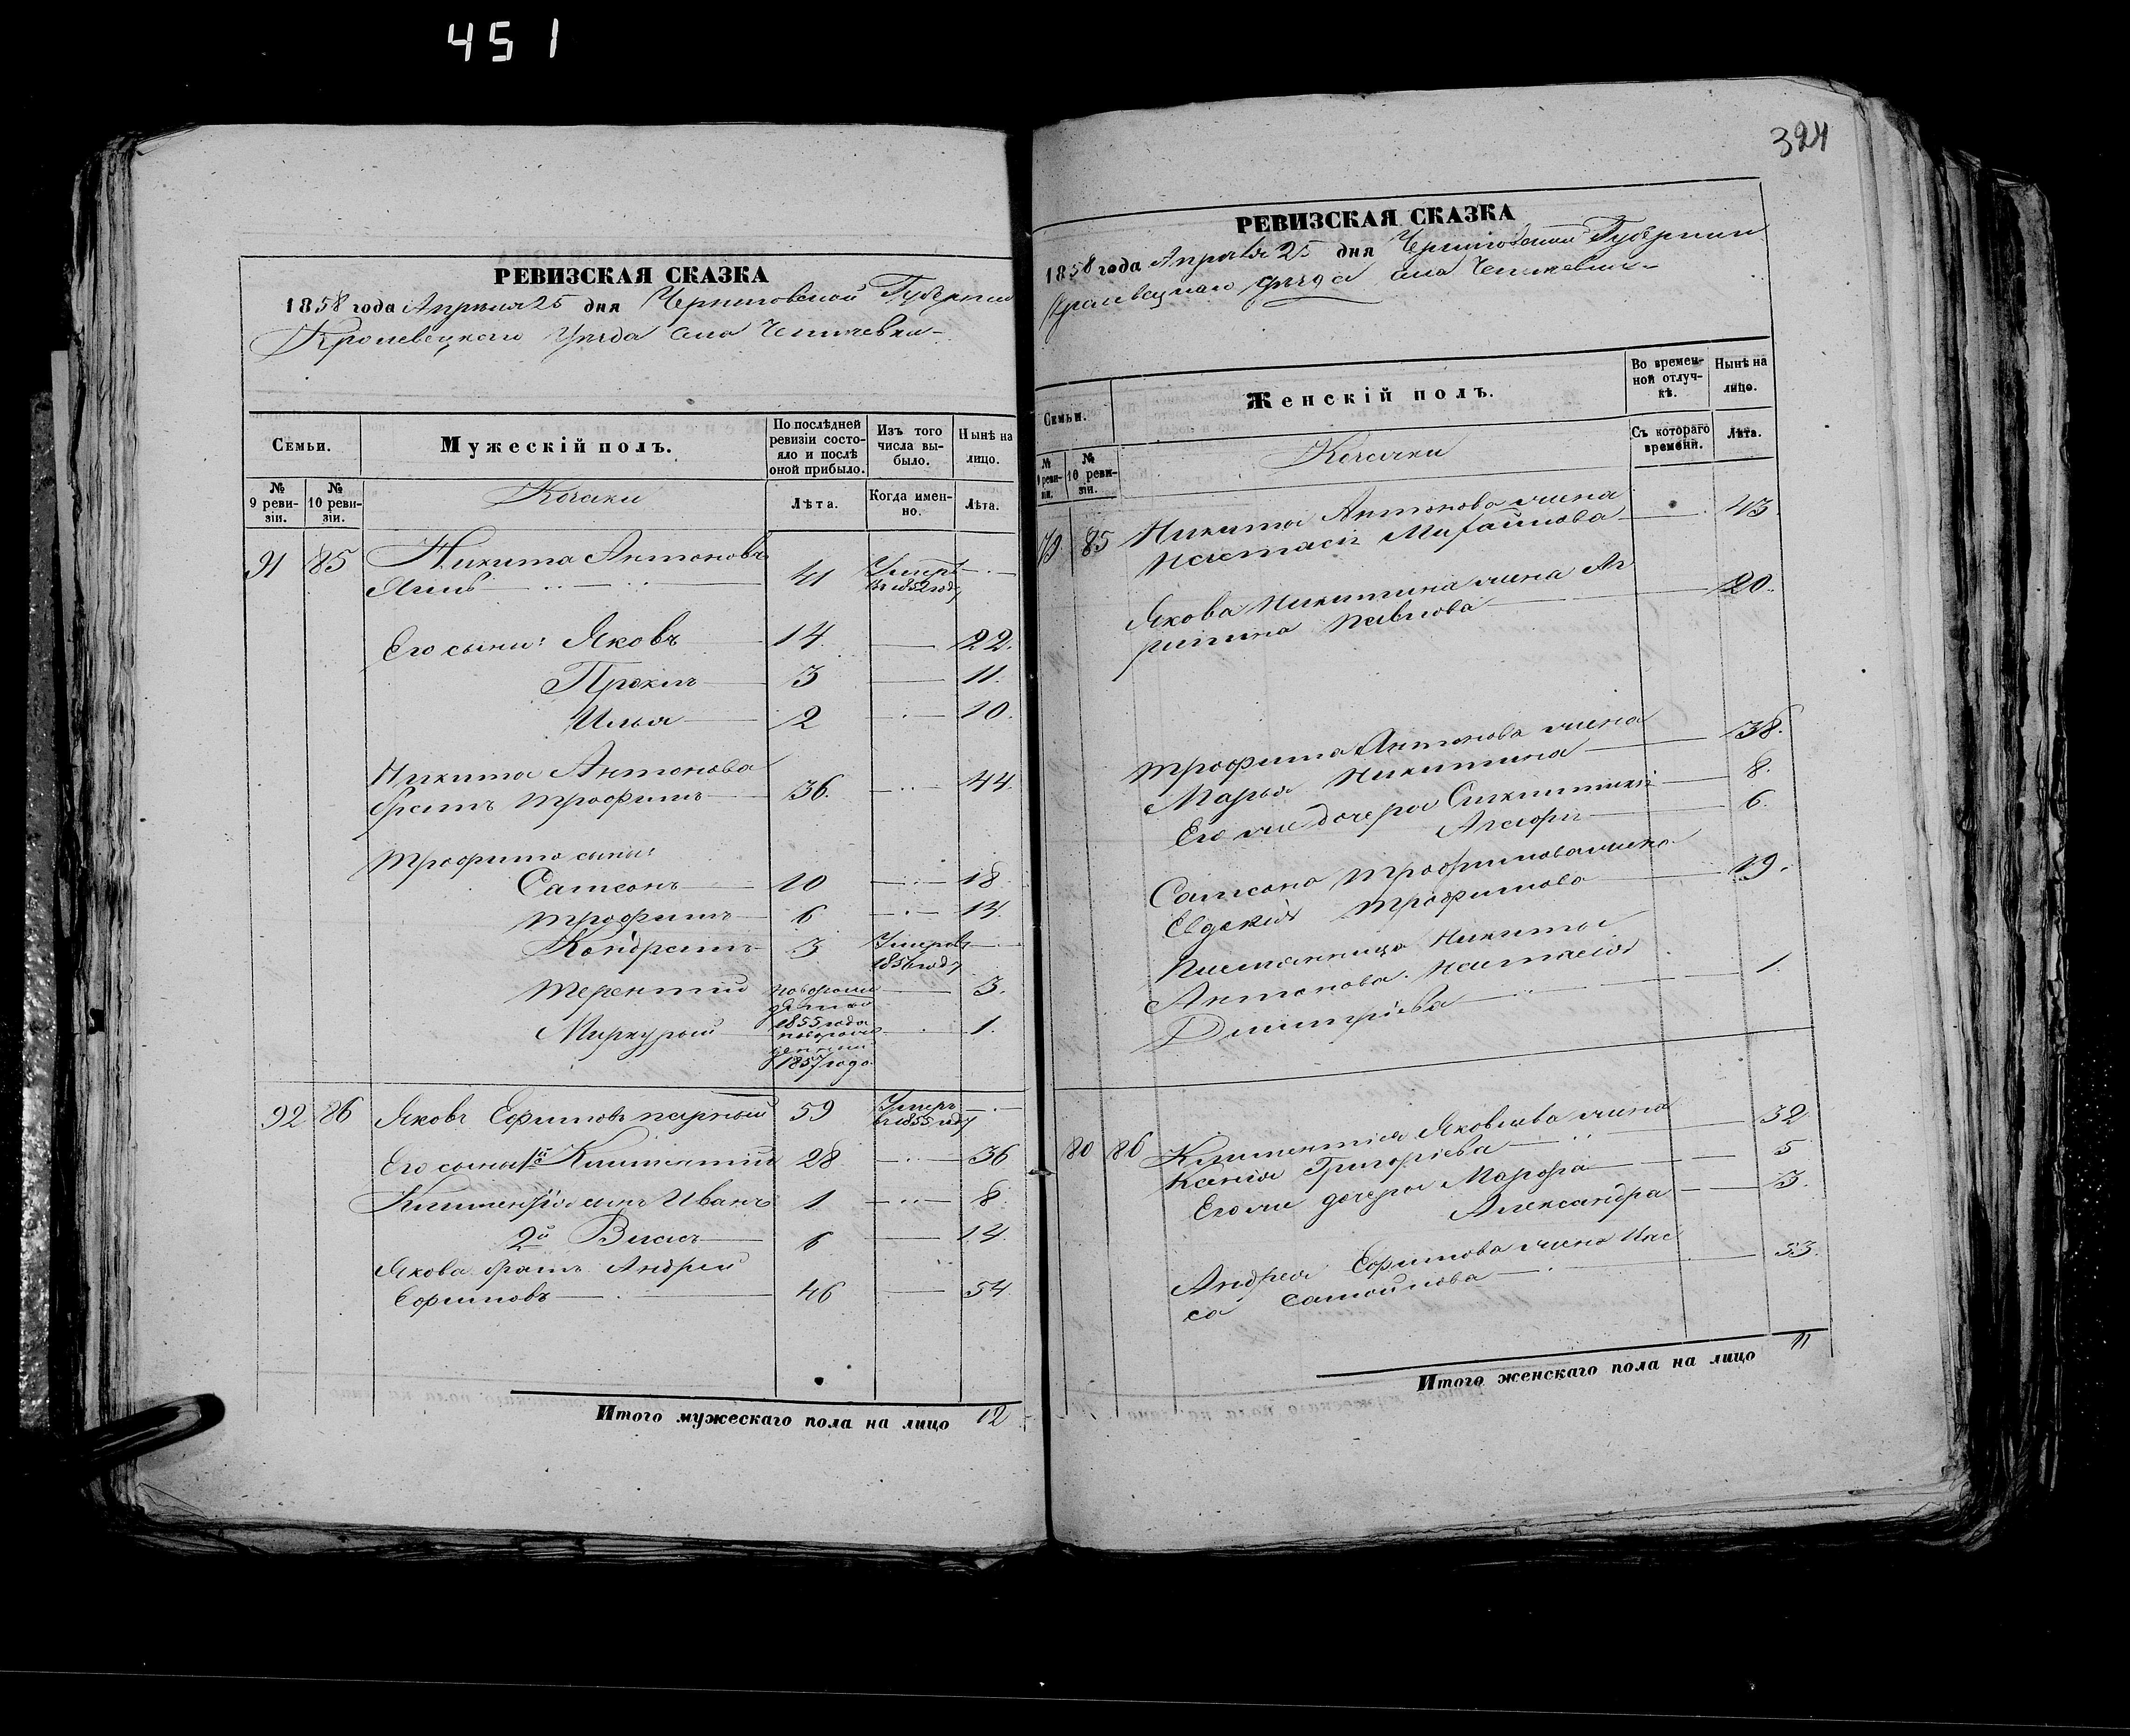 451
324
РЕВИЗСКАЯ СКАЗКА
1858 года Апреля 25 дня Черниговской Губернии
Кролевецкаго Уезда села
Семьи.
Мужескій полъ.
По послѣдней ревизіи состояло и послѣ оной прибыло.
Изъ того числа выбыло.
Нынѣ на лицо.
№ 9 ревизіи.
№ 10 ревизіи.
Козаки
Лѣта.
Когда именно.
Лѣта.
91 85 Никита Антоновъ
41 Умеръ въ 1852 году
Его сыны: Яковъ 14 22.
Прокопъ 3 11.
Илья 2 10.
Никита Антонова
братъ Трофимъ 36. 44.
Трофима сыны:
Самсонъ 10 18
Трофимъ 6 14.
Кондратъ 3 Умеръ 1856 году
Терентий новорожденный 1855 года 3.
Меркурий новорожденный 1857 года 1.
92 86 Яковъ Ефимовъ 59 Умеръ въ 1855 году
Его сыны 1й Климентий 28 36
Климентія сынъ Иванъ 1 8.
2й Власъ 6 14.
Якова братъ Андрей
Ефимовъ 46 54.
Итого мужескаго пола на лицо 12
РЕВИЗСКАЯ СКАЗКА
1858 года Апреля 25 дня Черниговской Губернии
Кролевецкаго Уезда села
Семьи.
Женскій полъ.
Во временной отлучкѣ.
Нынѣ на лицо.
№ 9 ревизіи.
№ 10 ревизіи.
Козачки
Съ котораго времени.
Лѣта.
79. 85 Никиты Антонова жена
Настасия Михайлова 43
Якова Никитина жена Аг
рипина Павлова 20.
Трофима Антонова жена
Марья Никитина 38.
Его же дочери 8.
6.
Самсона Трофимова жена
Евдокия Трофимова 19.
Племянница Никиты
Антонова Настасия
Дмитриева 1.
80 86 Климентия Яковлева жена
Ксения Григорьева 32
Его же дочери Марфа 5
Александра 3.
Андрея Ефимова жена Пас
са Самойлова 53.
Итого женскаго пола на лицо 11